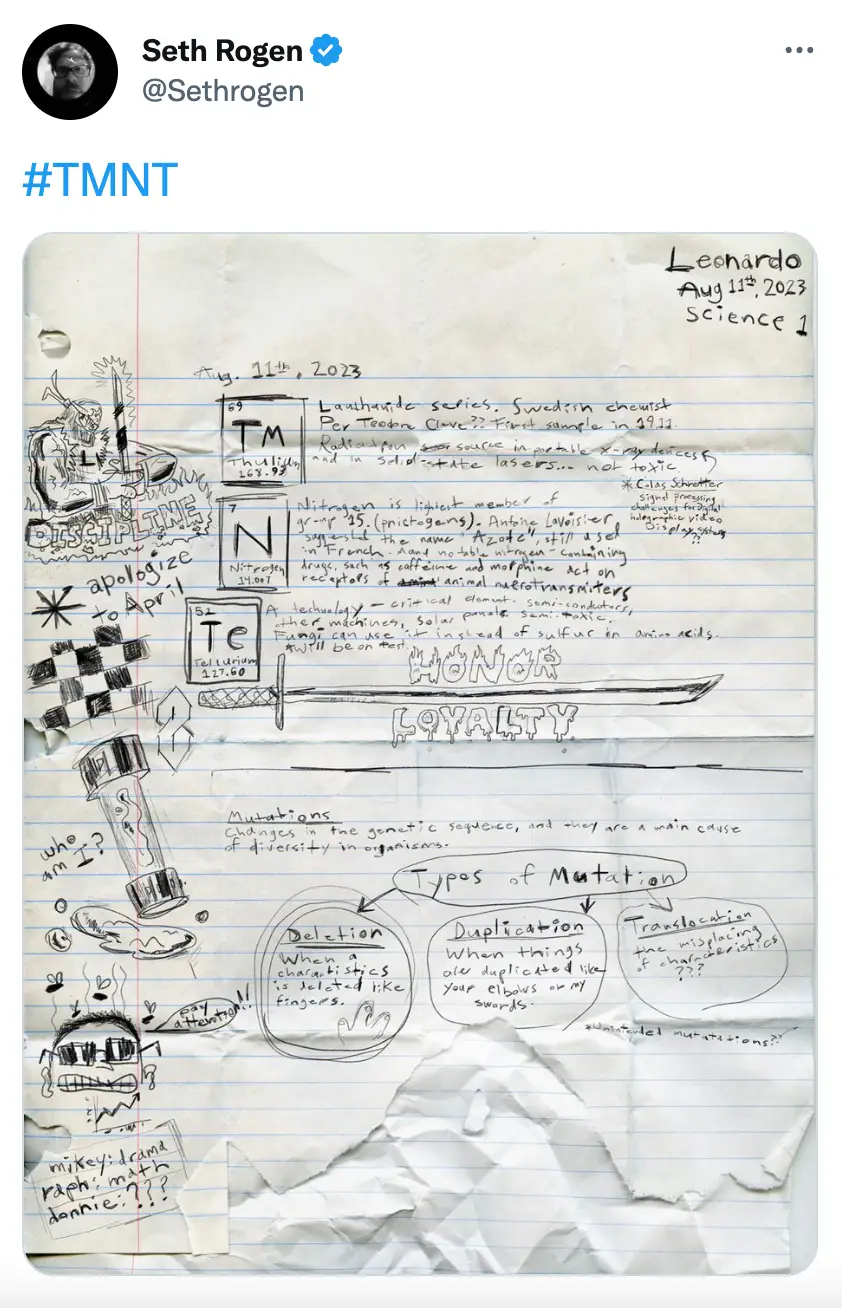 Seth Rogen
@Sethrogen
#TMNT
Leonardo
Aug 11th, 2023
Science 1
Aug. 11th, 2023
69
Tm
Thulium
168.93
Lanthanide series. Swedish chemist
Per Teodor Cleve?? First sample in 1911.
Radiation source in portable x-ray devices
and in solid-state lasers... not toxic.
* Colas Schretter
signal processing
challenges for digital
holographic video
Display systems
??
L
DISCIPLINE
7
N
Nitrogen
14.007
Nitrogen is lightest member of
group 15. (pnictogens). Antoine Lavoisier
suggested the name "Azote", still used
in French. Many notable nitrogen-containing
drugs, such as caffeine and morphine act on
receptors of animal nuerotransmiters
* apologize
to April
52
Te
Tellurium
127.60
A technology-critical element. semi-conductors,
other machines, solar panels. semi-toxic.
Fungi can use it instead of sulfur in amino acids.
*will be on test.
HONOR
LOYALTY
who
am I?
Mutations
Changes in the genetic sequence, and they are a main cause
of diversity in organisms.
Types of Mutation
Deletion
When a
charactistics
is deleted like
fingers.
Duplication
When things
are duplicated like
your elbows or my
swords.
Translocation
the misplacing
of characteristics
???
*Unintended mutatations??
pay
attention!!
mikey: drama
raph: math
donnie: ???